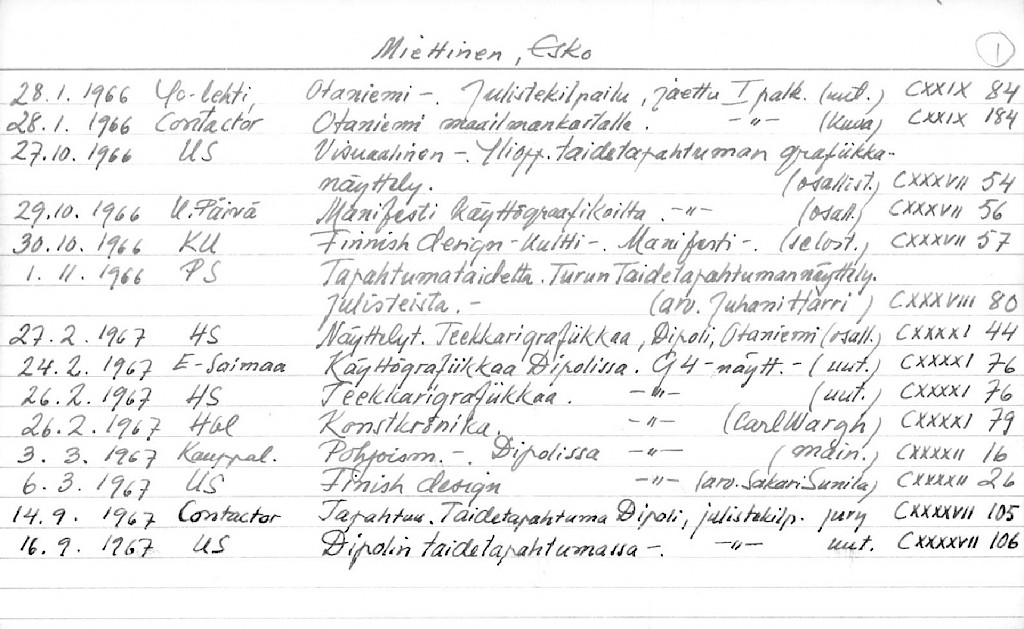 Miettinen, Esko 1
28.1.1966 Yo-lehti, Otaniemi -. Julistekilpailu, jaettu I palk. (uut.) CXXIX 84
28.1.1966 Contactor Otaniemi maailmankartalle. -"- (kuva) CXXIX 184
27.10.1966 US Visuaalinen -. Yliopp. taidetapahtuman grafiikka-
näyttely. (osallist.) CXXXVII 54
29.10.1966 U.Päivä Manifesti käyttögraafikoilta. -"- (osall.) CXXXVII 56
30.10.1966 KU Finnish design -kultti-. Manifesti -. (selost.) CXXXVII 57
1.11.1966 PS Tapahtumataidetta. Turun Taidetapahtuman näyttely.
julisteista. - (arv. Juhani Harri) CXXXVIII 80
27.2.1967 HS Näyttelyt. Teekkarigrafiikkaa, Dipoli, Otaniemi (osall.) CXXXXI 44
24.2.1967 E-Saimaa Käyttögrafiikkaa Dipolissa. G4-näytt. - (uut.) CXXXXI 76
26.2.1967 HS Teekkarigrafiikkaa. -"- (uut.) CXXXXI 76
26.2.1967 Hbl Konstkrönika. -"- (Carl Wargh) CXXXXI 79
3.3.1967 Kauppal. Pohjoism. -. Dipolissa -"- (main.) CXXXXII 16
6.3.1967 US Finish design -"- (arv. Sakari Sunila) CXXXXII 26
14.9.1967 Contactor Tapahtuu. Taidetapahtuma Dipoli, julistekilp. jury CXXXXVII 105
16.9.1967 US Dipolin taidetapahtumassa -. -"- uut. CXXXXVII 106